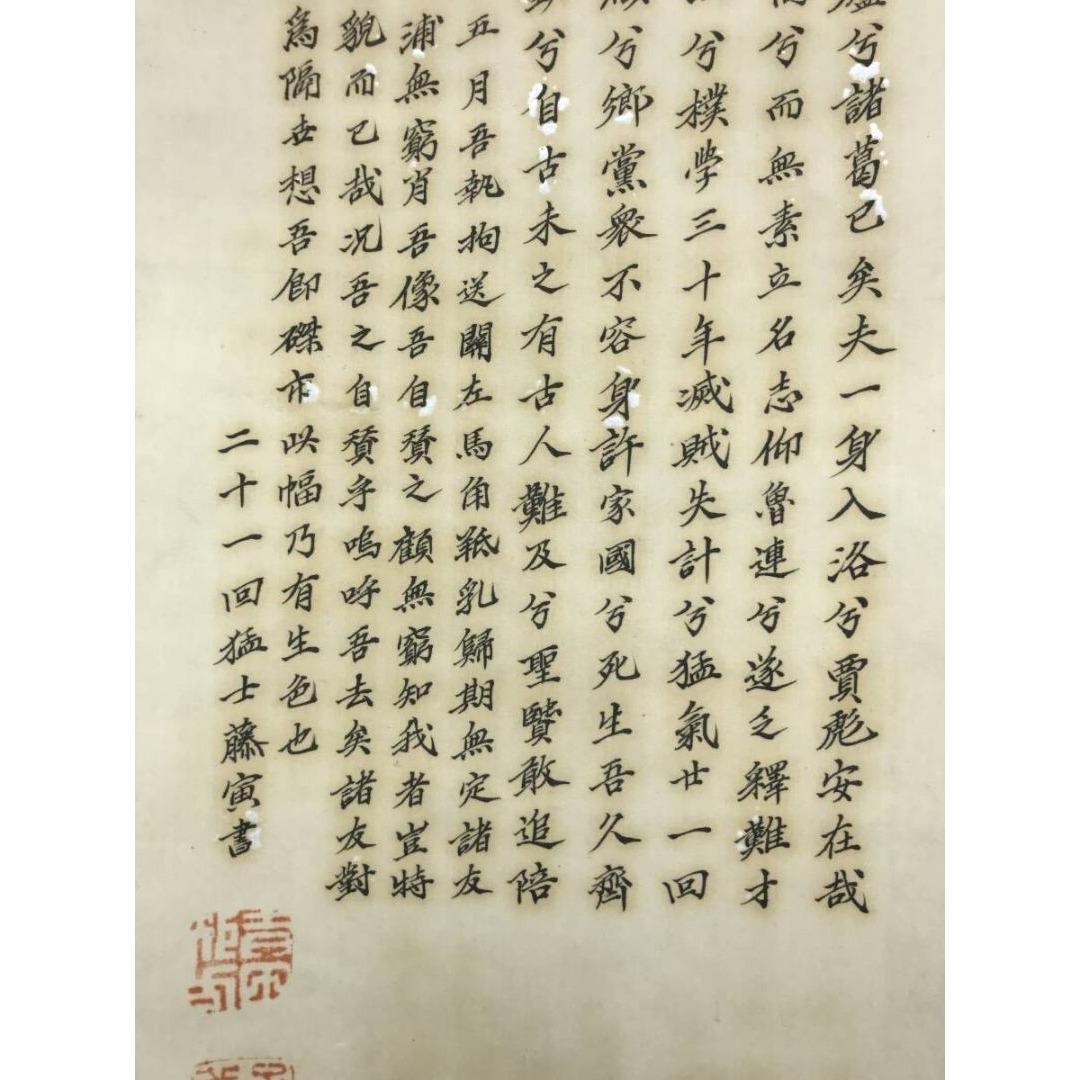 兮諸葛已矣夫一身入洛兮賈彪安在哉
兮而無素立名志仰魯連兮遂乏釋難才
兮樸学三十年滅賊失計兮猛氣廿一回
兮鄉黨衆不容身許家國兮死生吾久齊
兮自古未之有古人難及兮聖賢敢追陪
五月吾執拘送關左馬角羝乳歸期無定諸友
浦無窮肖吾像吾自賛之顧無窮知我者豈特
貌而已哉況吾之自賛乎嗚呼吾去矣諸友對
爲隔世想吾即磔市此幅乃有生色也
二十一回猛士藤寅書